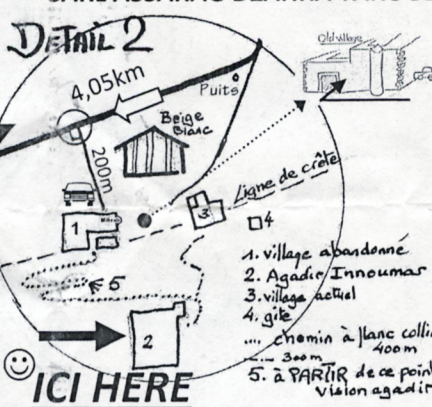 DETAIL 2
Old village
4,05km
Puits
Beige
Blanc
200m
Ligne de crête
3
4
1
5
2
1. village abandonné
2. Agadir Innoumas
3. village actuel
4. gîte
.... chemin à flanc colli
300m 400m
5. à PARTIR de ce point
vision agadir
ICI HERE